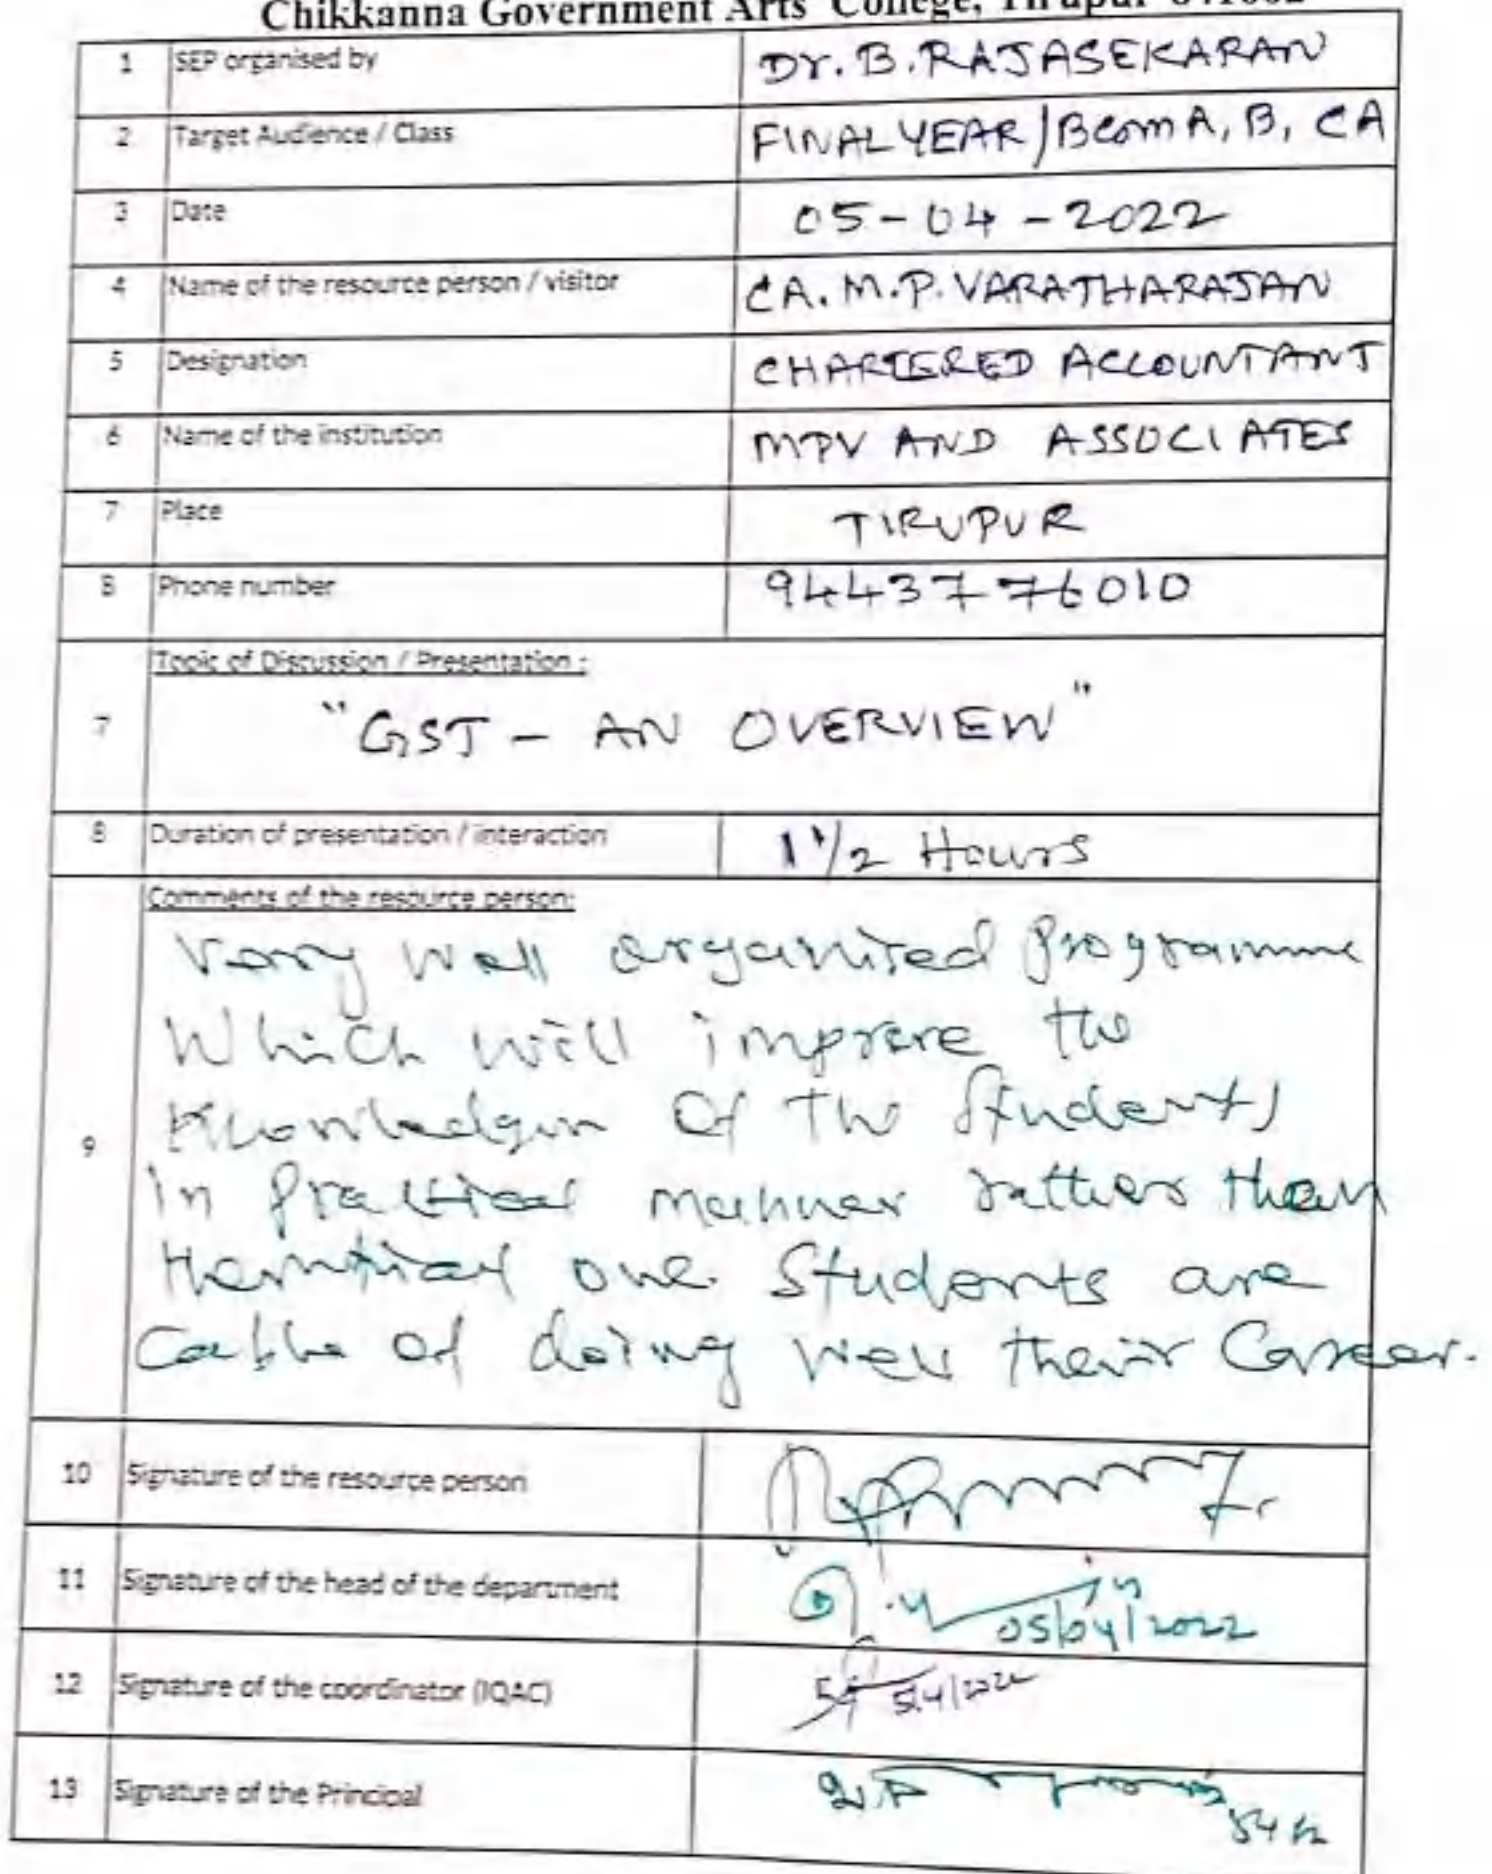 Chikkanna Government Arts College, Tirupur
1 SEP organised by Dr. B. RAJASEKARAN
2 Target Audience / Class FINAL YEAR / Bcom A, B, CA
3 Date 05-04-2022
4 Name of the resource person / visitor CA. M.P. VARATHARAJAN
5 Designation CHARTERED ACCOUNTANT
6 Name of the institution MPV AND ASSOCIATES
7 Place TIRUPUR
8 Phone number 9443776010
Topic of Discussion / Presentation :
7 "GST - AN OVERVIEW"
8 Duration of presentation / interaction 1 1/2 Hours
Comments of the resource person:
Very well organised Programme
Which will improve the
Knowledge of the Students
9
in practical manner rather than
one. Students are
of doing well their Career.
10 Signature of the resource person
11 Signature of the head of the department 05/04/2022
12 Signature of the coordinator (IQAC) 5/4/2022
13 Signature of the Principal